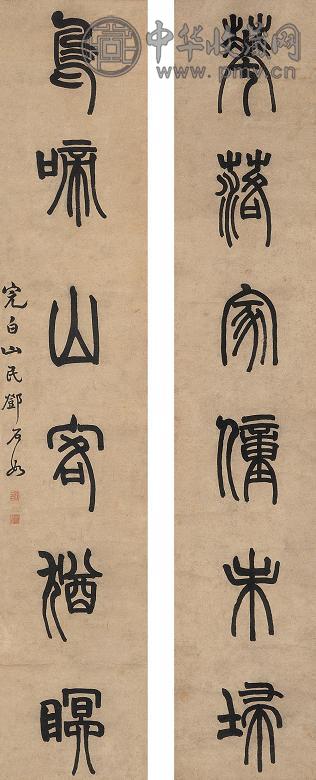 華落家僮未埽
鳥啼山客猶瞑
完白山民鄧石如
中华收藏网
www.pmv.cn